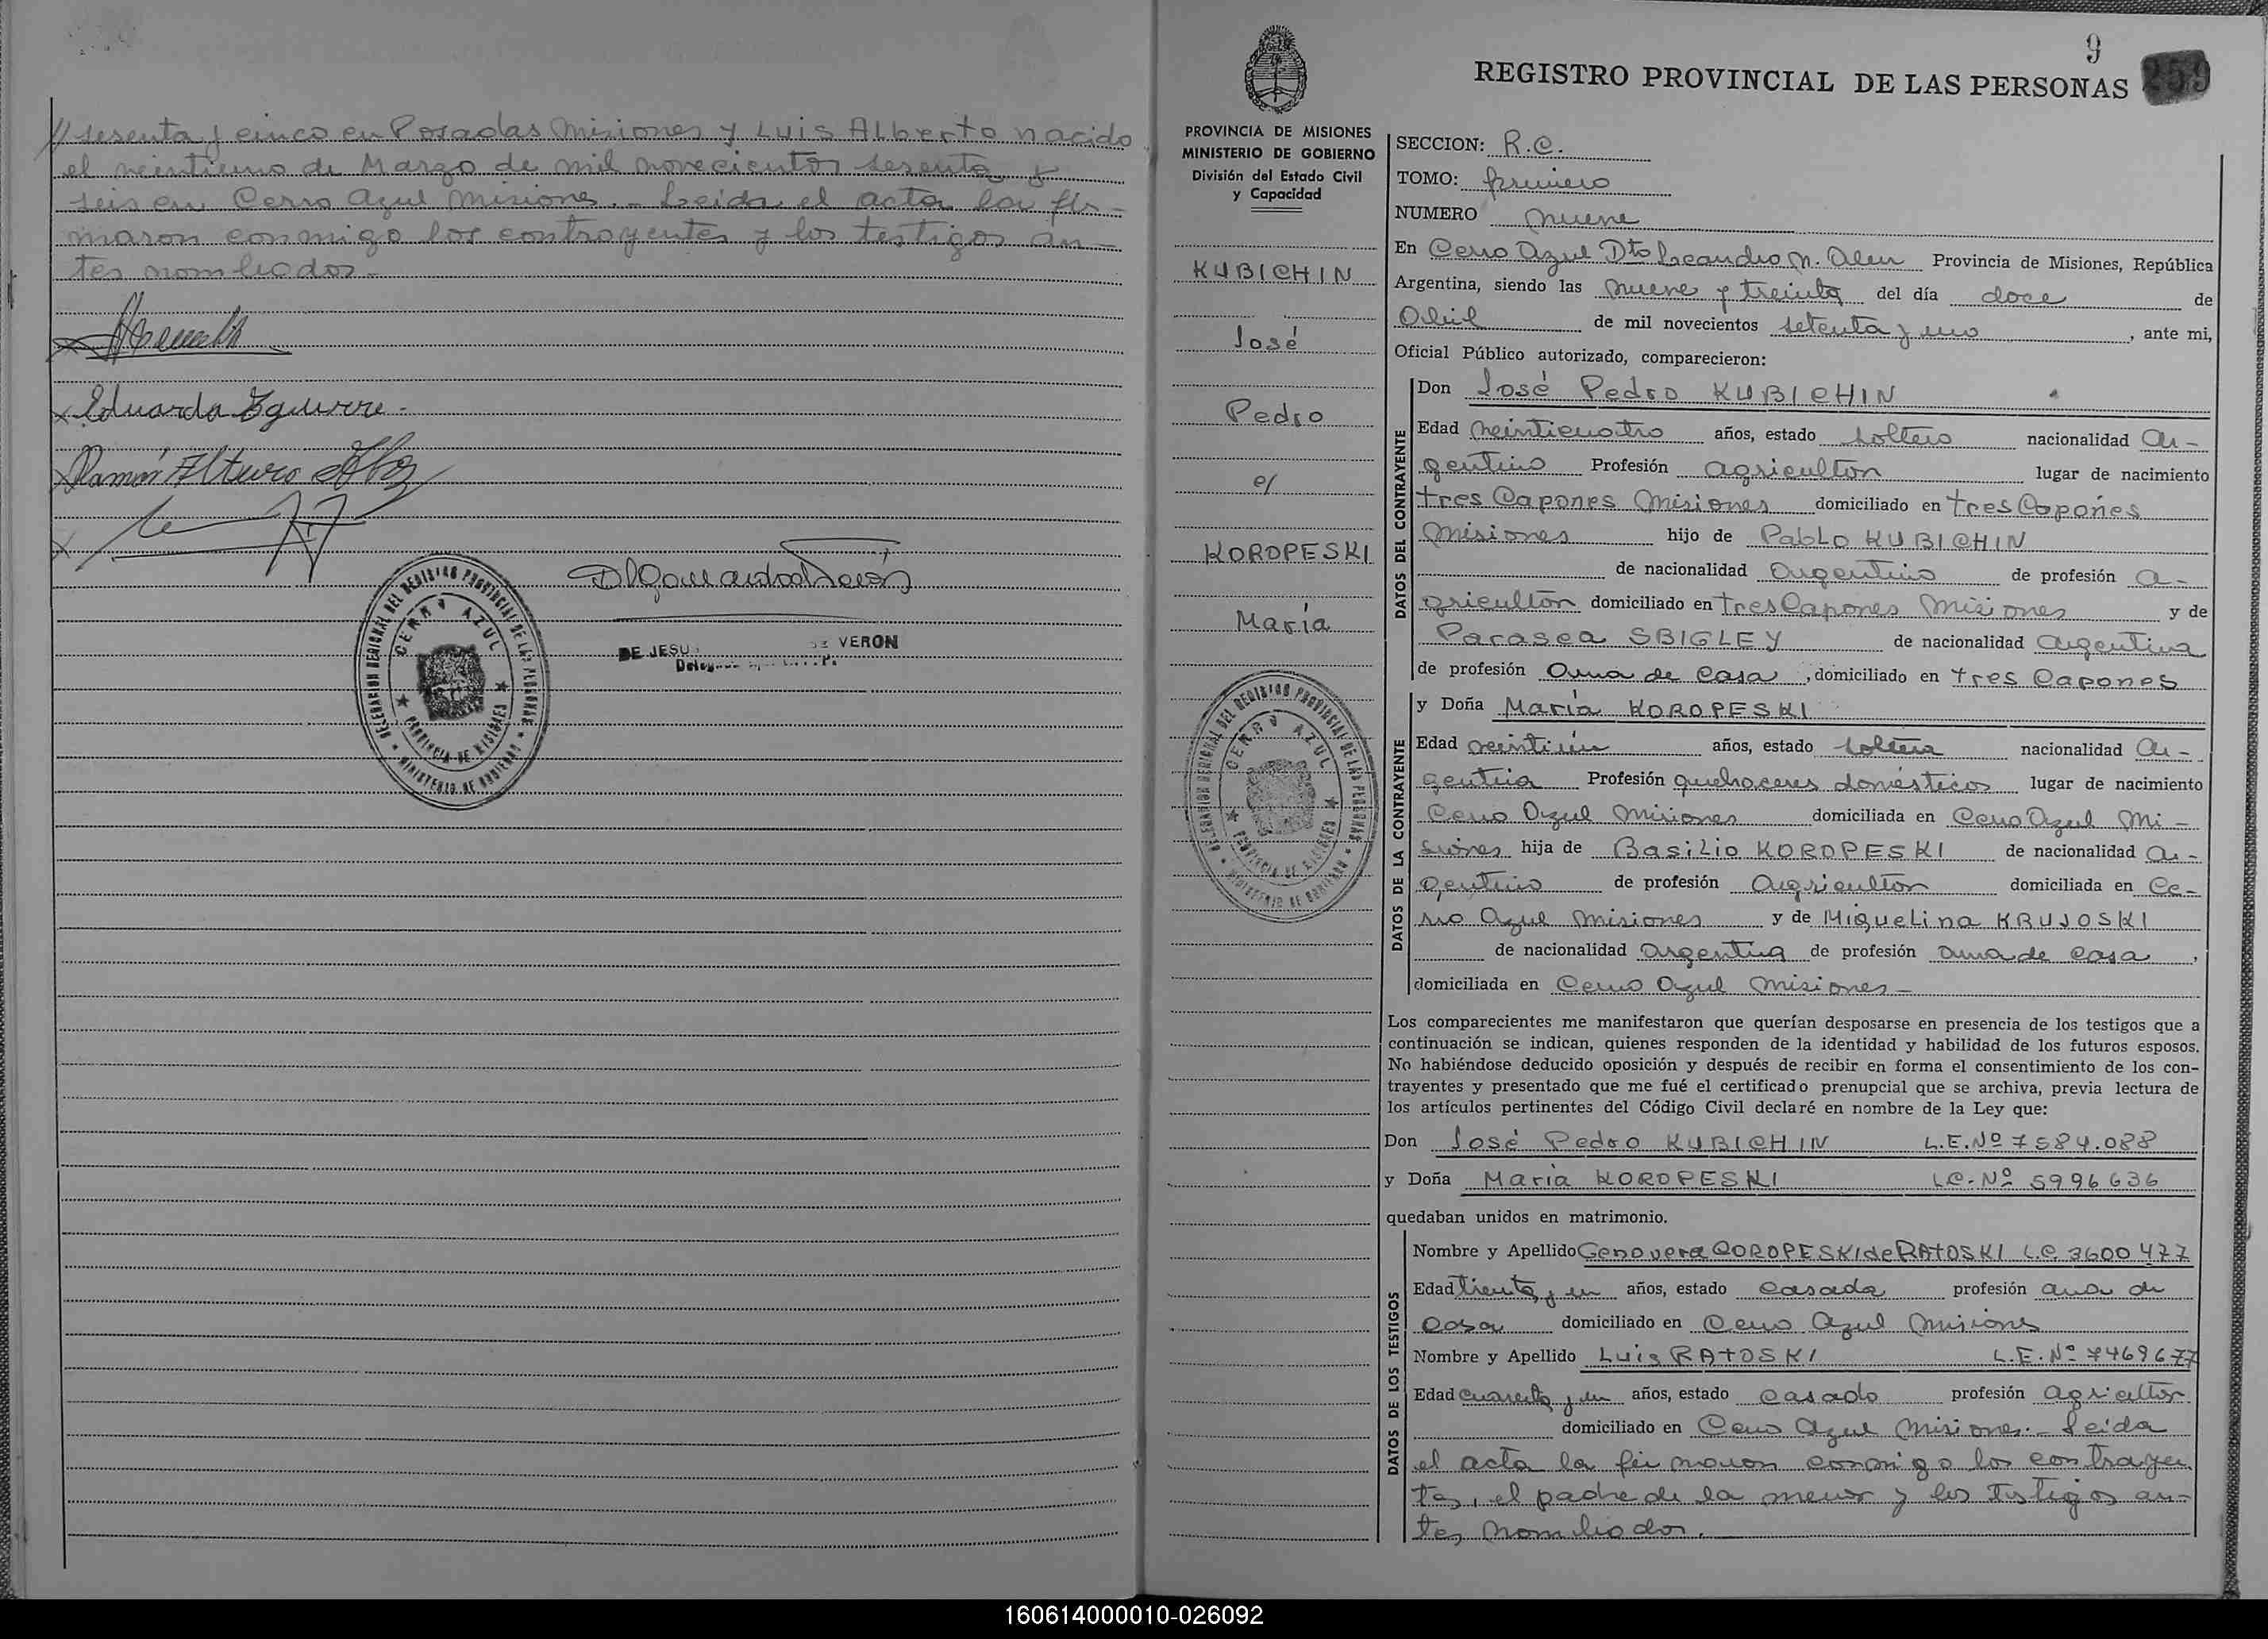 // sesenta y cinco en Posadas Misiones y Luis Alberto nacido
el veintiuno de Marzo de mil novecientos sesenta y
seis en Cerro Azul Misiones.- Leida el acta la fir-
maron conmigo los contrayentes y los testigos an-
tes nombrados.-
x Eduarda Eguirre.-
Ramón Arturo
DELEGACION REGIONAL DEL REGISTRO PROVINCIAL DE LAS PERSONAS
CERRO AZUL
PROVINCIA DE MISIONES
MINISTERIO DE GOBIERNO
DE JESU VERON
9
REGISTRO PROVINCIAL DE LAS PERSONAS
259
PROVINCIA DE MISIONES
MINISTERIO DE GOBIERNO
División del Estado Civil
y Capacidad
KUBICHIN
José
Pedro
c/
KOROPESKI
María
DELEGACION REGIONAL DEL REGISTRO PROVINCIAL DE LAS PERSONAS
CERRO AZUL
PROVINCIA DE MISIONES
MINISTERIO DE GOBIERNO
SECCION: R.C.
TOMO: primero
NUMERO nueve
En Cerro Azul Dto Leandro N. Alem Provincia de Misiones, República
Argentina, siendo las nueve y treinta del día doce de
Abril de mil novecientos setenta y uno, ante mi,
Oficial Público autorizado, comparecieron:
DATOS DEL CONTRAYENTE
Don José Pedro KUBICHIN
Edad veinticuatro años, estado soltero nacionalidad Ar-
gentino Profesión agricultor lugar de nacimiento
tres Capones Misiones domiciliado en tres Capones
Misiones hijo de Pablo KUBICHIN
de nacionalidad Argentino de profesión a-
gricultor domiciliado en tres Capones Misiones y de
Parasca SBIGLEY de nacionalidad Argentina
de profesión Ama de Casa, domiciliado en tres Capones
DATOS DE LA CONTRAYENTE
y Doña María KOROPESKI
Edad veintiún años, estado soltera nacionalidad Ar-
gentina Profesión quehaceres domésticos lugar de nacimiento
Cerro Azul Misiones domiciliada en Cerro Azul Mi-
siones hija de Basilio KOROPESKI de nacionalidad Ar-
gentino de profesión Augricultor domiciliada en Ce-
rro Azul Misiones y de Miguelina KRUJOSKI
de nacionalidad Argentina de profesión ama de casa,
domiciliada en Cerro Azul Misiones-
Los comparecientes me manifestaron que querían desposarse en presencia de los testigos que a
continuación se indican, quienes responden de la identidad y habilidad de los futuros esposos.
No habiéndose deducido oposición y después de recibir en forma el consentimiento de los con-
trayentes y presentado que me fué el certificado prenupcial que se archiva, previa lectura de
los artículos pertinentes del Código Civil declaré en nombre de la Ley que:
Don José Pedro KUBICHIN L.E. Nº 7584.088
y Doña María KOROPESKI L.C. Nº 5996636
quedaban unidos en matrimonio.
DATOS DE LOS TESTIGOS
Nombre y Apellido Genovera COROPESKI de RATOSKI L.C. 3600477
Edad treinta y un años, estado Casada profesión ama de
Casa domiciliado en Cerro Azul Misiones
Nombre y Apellido Luis RATOSKI L.E. Nº 7469677
Edad cuarenta y un años, estado casado profesión agricultor
domiciliado en Cerro Azul Misiones.- Leida
el acta la firmaron conmigo los contrayen
tes, el padre de la menor y los testigos an-
tes nombrados.
160614000010-026092